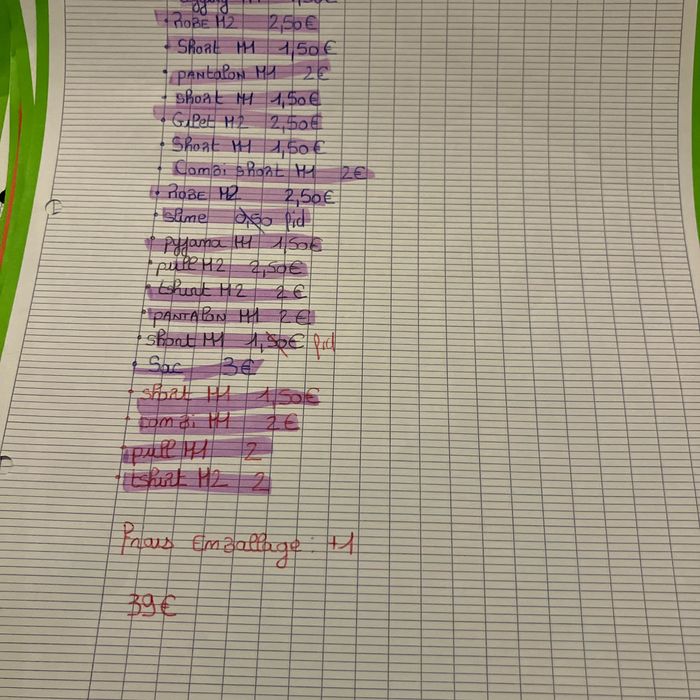 • ROBE M2 2,50€
• Short M1 1,50€
• PANTALON M1 2€
• short M1 1,50€
• Gilet M2 2,50€
• Short M1 1,50€
• Combi short M1 2€
• ROBE M2 2,50€
• slime 0,50 Pid
• pyjama M1 1,50€
• pull M2 2,50€
• tshirt M2 2€
• PANTALON M1 2€
• short M1 1,50€ Pid
• Sac 3€
• short M1 1,50€
• combi M1 2€
• pull M1 2
• tshirt M2 2
Frais Emballage : +1
39€